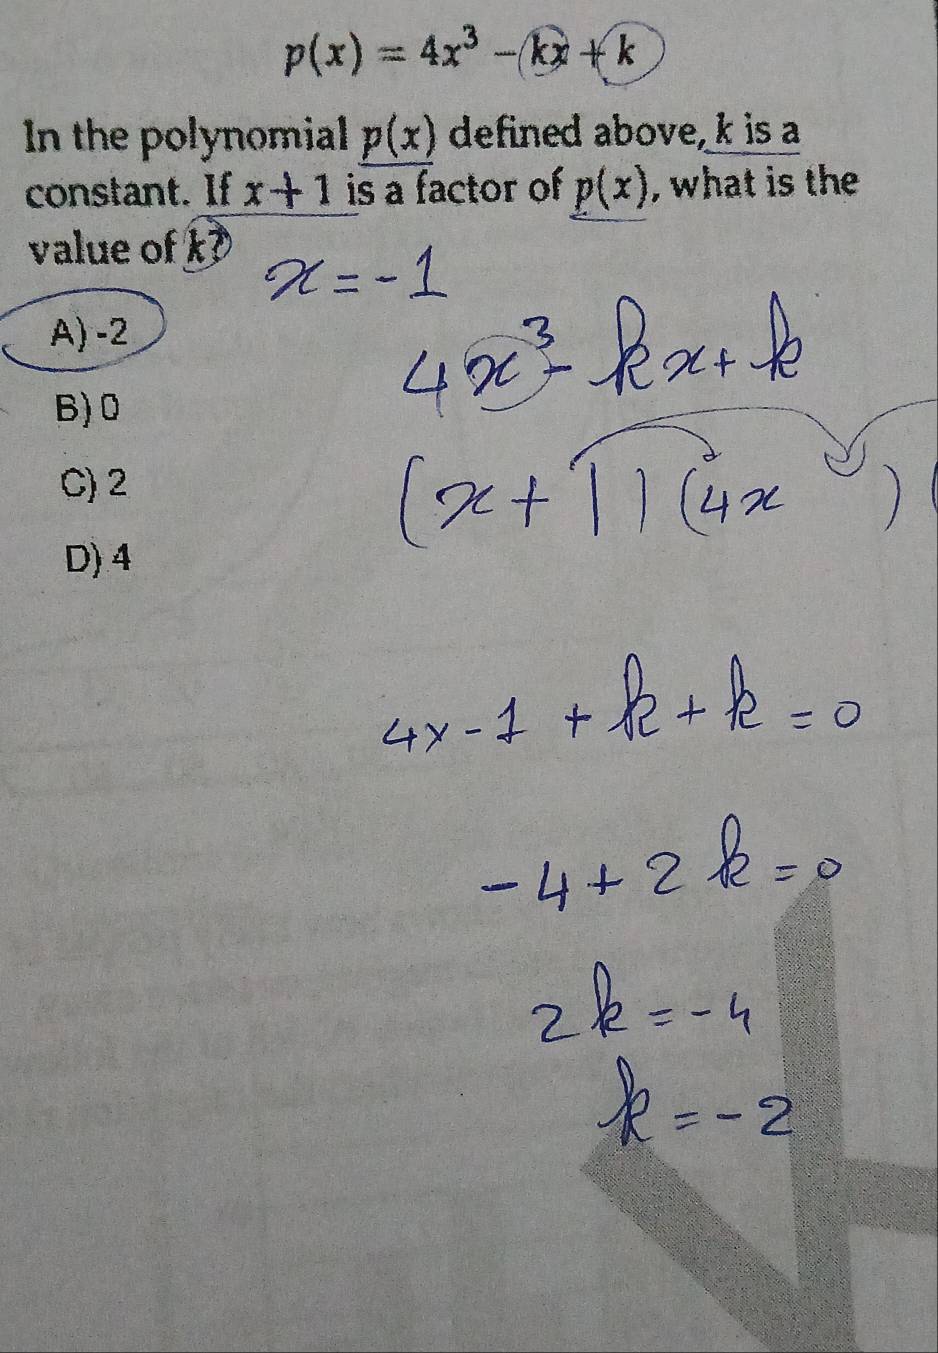 p(x) = 4x³ − kx + k
In the polynomial p(x) defined above, k is a
constant. If x + 1 is a factor of p(x), what is the
value of k?
x = - 1
A) -2
4x³ - kx + k
B) 0
C) 2
(x + 1) (4x ) (
D) 4
4x - 1 + k + k = 0
- 4 + 2k = 0
2k = - 4
k = - 2